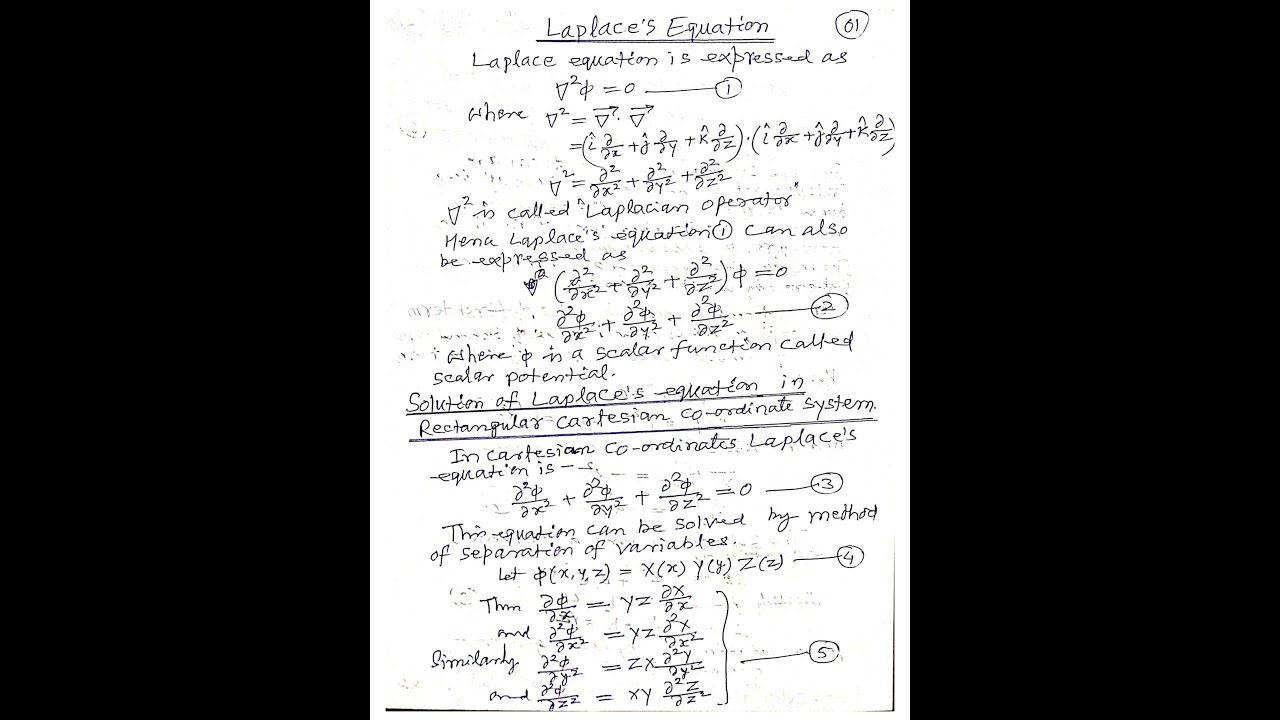 Laplace's Equation 01
Laplace equation is expressed as
∇²ϕ = 0 —— ①
where ∇² = ∇⃗ . ∇⃗
= (î ∂/∂x + ĵ ∂/∂y + k̂ ∂/∂z) . (î ∂/∂x + ĵ ∂/∂y + k̂ ∂/∂z)
∇² = ∂²/∂x² + ∂²/∂y² + ∂²/∂z²
∇² is called "Laplacian operator"
Hena Laplace's equation ① can also
be expressed as
(∂²/∂x² + ∂²/∂y² + ∂²/∂z²) ϕ = 0
∂²ϕ/∂x² + ∂²ϕ/∂y² + ∂²ϕ/∂z² —— ②
where ϕ is a scalar function called
scalar potential.
Solution of Laplace's equation in
Rectangular Cartesian Co-ordinate system.
In Cartesian Co-ordinates Laplace's
equation is –
∂²ϕ/∂x² + ∂²ϕ/∂y² + ∂²ϕ/∂z² = 0 —— ③
This equation can be solved by method
of separation of variables.
Let ϕ(x, y, z) = X(x) Y(y) Z(z) —— ④
Then ∂ϕ/∂x = YZ ∂X/∂x
and ∂²ϕ/∂x² = YZ ∂²X/∂x²
Similarly ∂²ϕ/∂y² = ZX ∂²Y/∂y² —— ⑤
and ∂²ϕ/∂z² = XY ∂²Z/∂z²